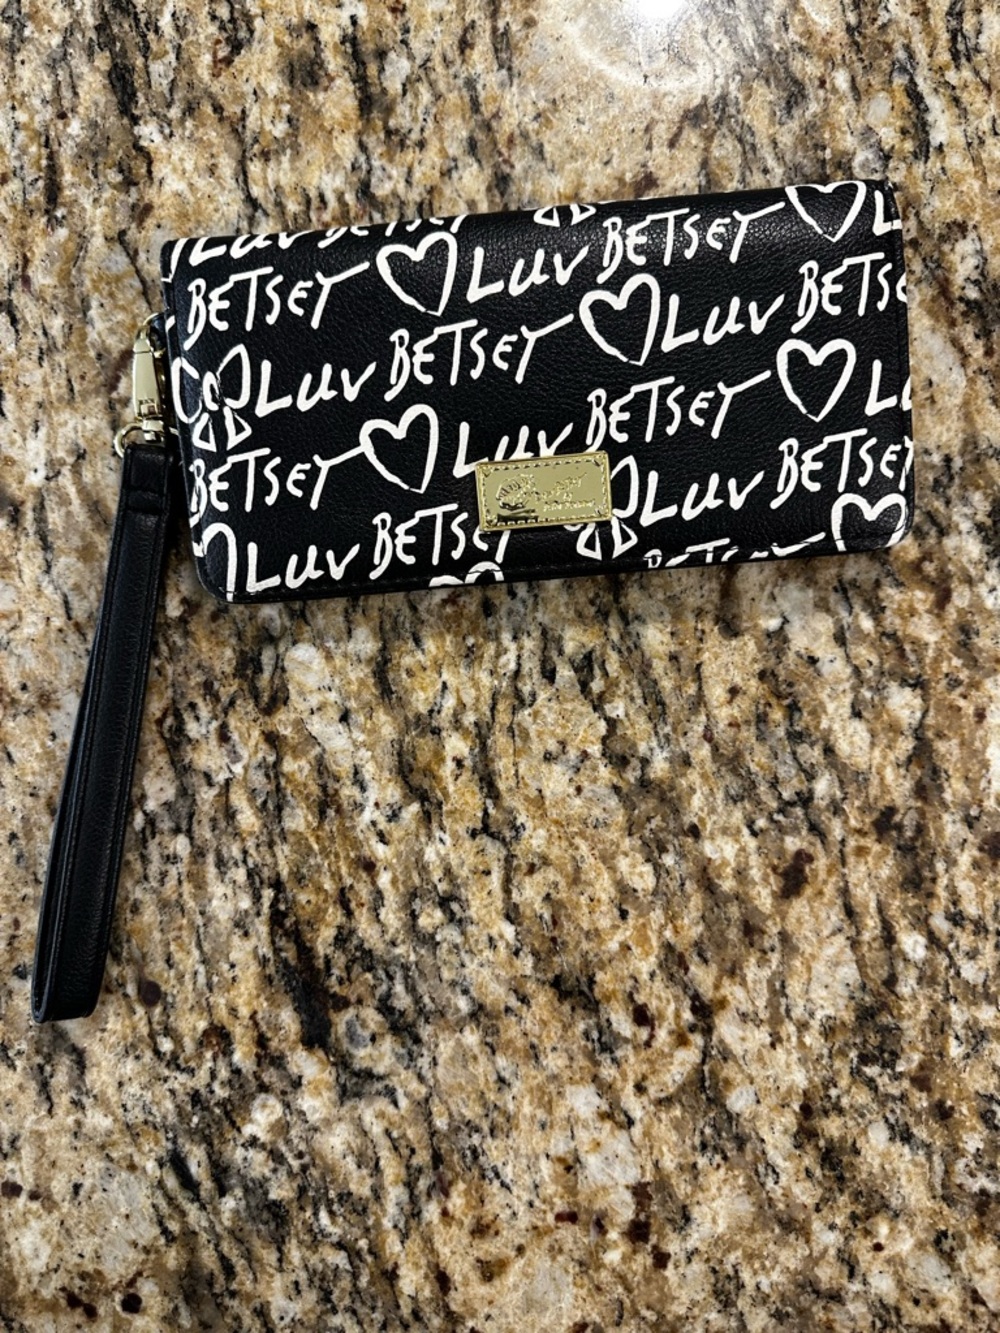 Luv BETSEY
BETSEY Luv BETSEY L
Luv BETSEY Luv BETSE
BETSEY Luv BETSEY L
Luv BETSEY Luv BETSEY